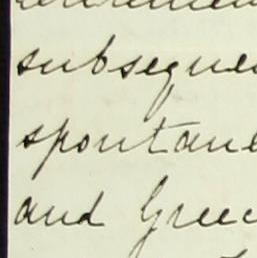 subseque
spontane
and Greec